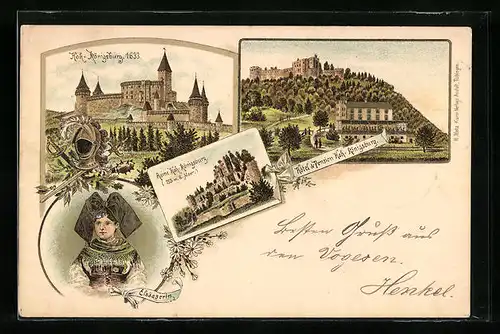 Hoh-Königsburg 1633
Ruine Hoh-Königsburg
Hôtel & Pension Hoh-Königsburg
Elsässerin
Besten Gruß aus
den Vogesen.
Henkel.